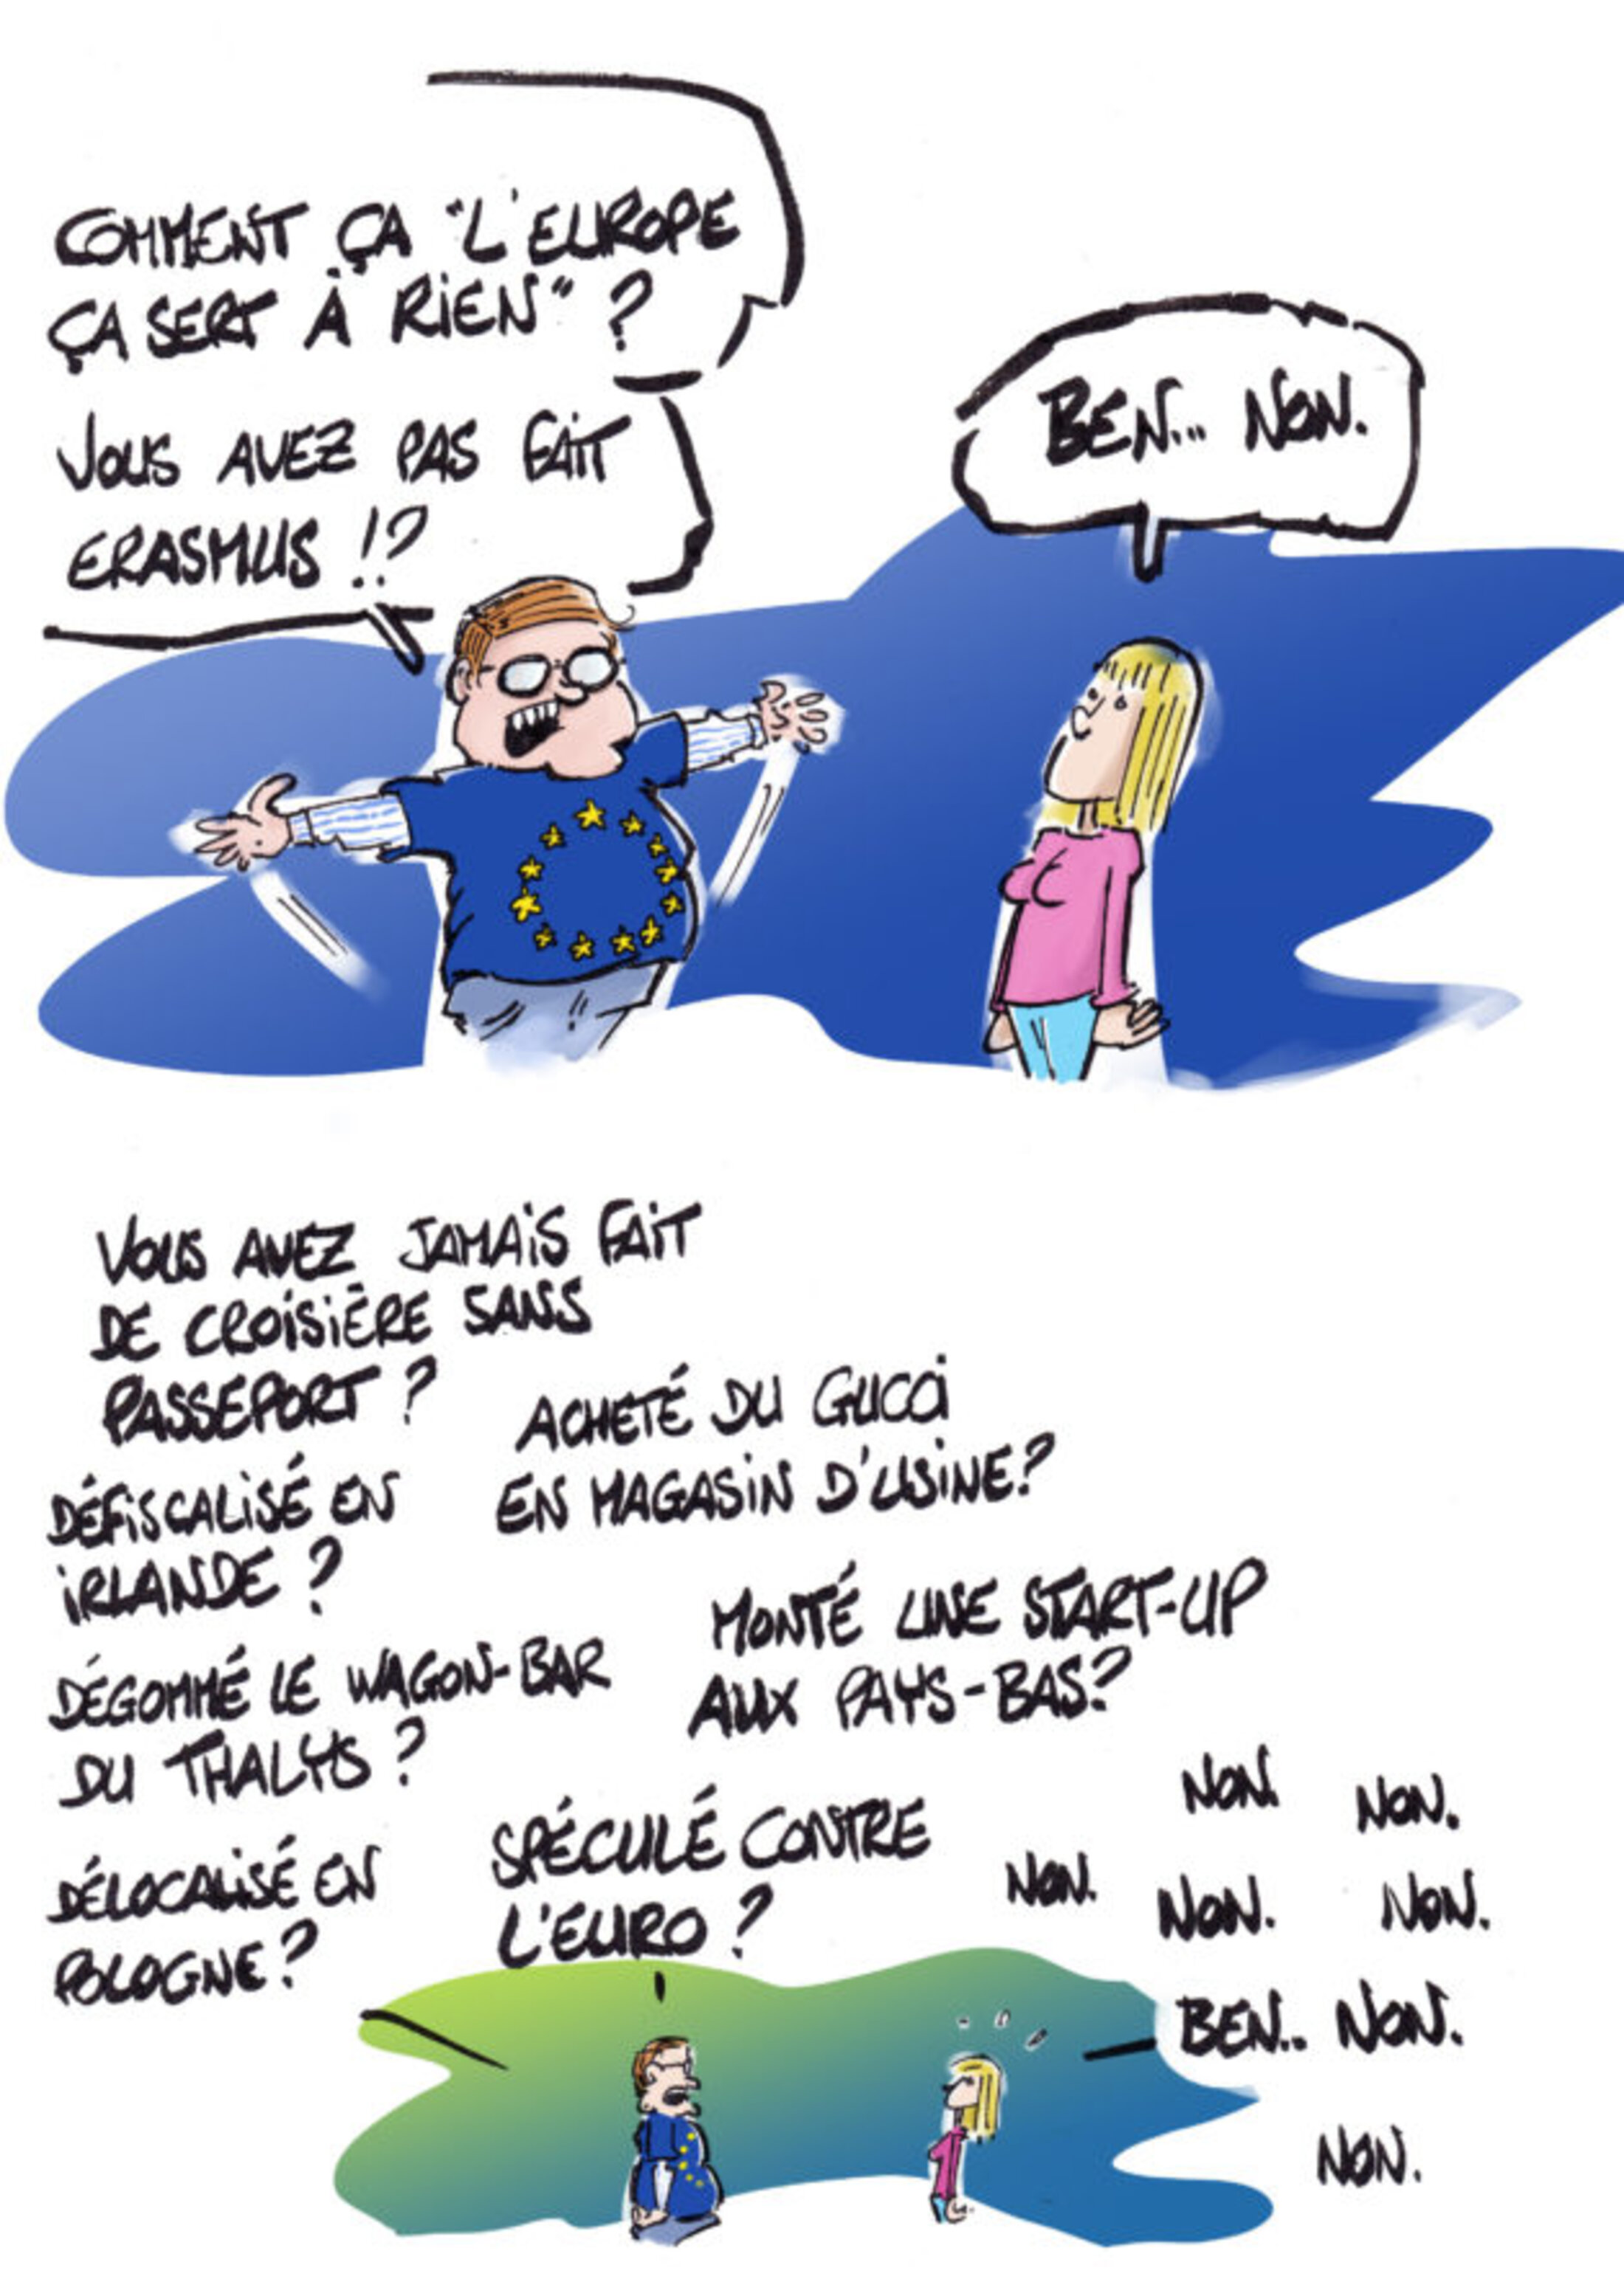 COMMENT ÇA "L'EUROPE
ÇA SERT À RIEN" ?
VOUS AVEZ PAS FAIT
ERASMUS !?
BEN... NON.
VOUS AVEZ JAMAIS FAIT
DE CROISIÈRE SANS
PASSEPORT ?
ACHETÉ DU GUCCI
EN MAGASIN D'USINE ?
DÉFISCALISÉ EN
IRLANDE ?
MONTÉ UNE START-UP
AUX PAYS-BAS ?
DÉGOMMÉ LE WAGON-BAR
DU THALYS ?
SPÉCULÉ CONTRE
L'EURO ?
DÉLOCALISÉ EN
POLOGNE ?
NON. NON.
NON. NON. NON.
BEN.. NON.
NON.